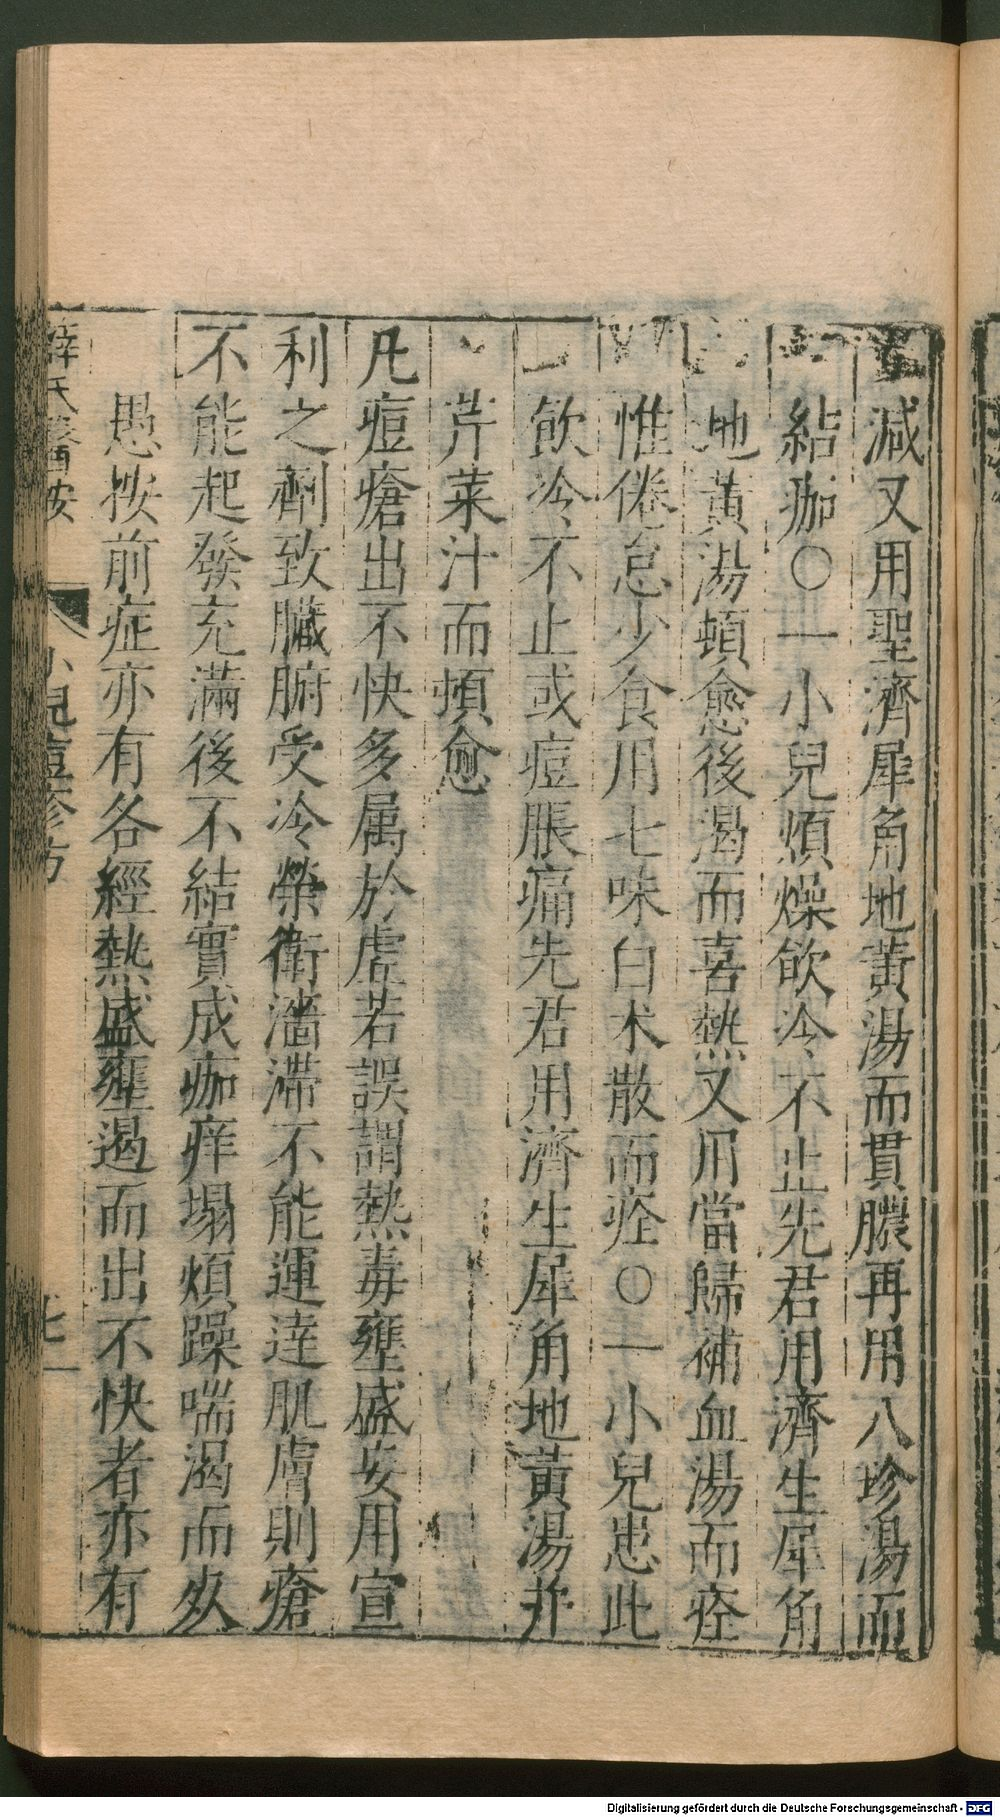 減又用聖濟犀角地黃湯而貫膿再用八珍湯而
結痂〇一小兒煩燥飲冷不止先君用濟生犀角
地黃湯頓愈後渴而喜熱又用當歸補血湯而痊
惟倦怠少食用七味白朮散而痊〇一小兒患此
飲冷不止或痘脹痛先君用濟生犀角地黃湯并
芹菜汁而頓愈
凡痘瘡出不快多属於虛若誤謂熱毒壅盛妄用宣
利之劑致臟腑受冷榮衛濇滯不能運達肌膚則瘡
不能起發充滿後不結實成痂痒塌煩躁喘渴而死
愚按前症亦有各經熱盛壅遏而出不快者亦有
薛氏醫按 小兒痘疹方 七
Digitalisierung gefördert durch die Deutsche Forschungsgemeinschaft - DFG